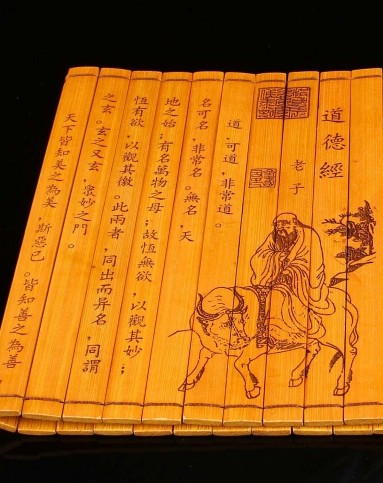 道德經
老子
道,可道,非常道。
名可名,非常名。無名,天
地之始;有名萬物之母;故恆無欲,以觀其妙;
恆有欲,以觀其徼。此兩者,同出而异名,同謂
之玄。玄之又玄,眾妙之門。
天下皆知美之為美,斯惡已。皆知善之為善